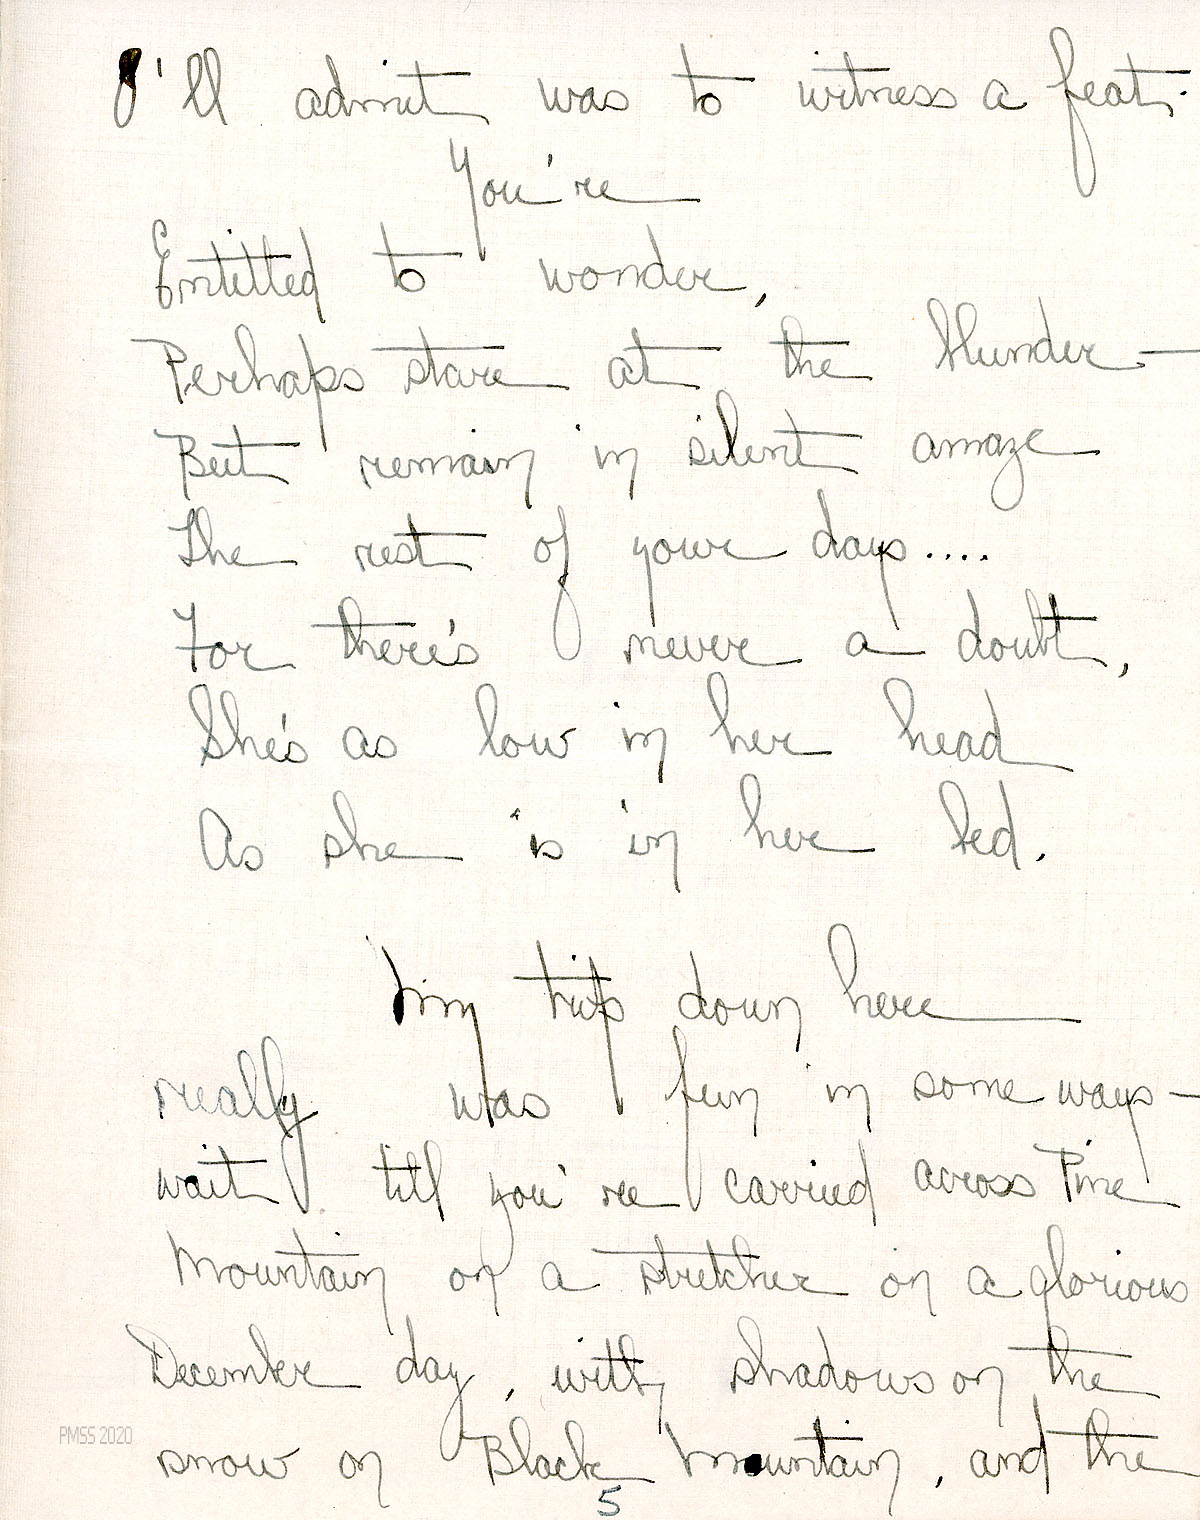 I'll admit was to witness a feat;
You're
Entitled to wonder,
Perhaps stare at the blunder —
But remain in silent amaze
The rest of your days....
For there's never a doubt,
She's as low in her head
As she is in her bed.
My trip down here
really was fun in some ways —
wait till you're carried across Pine
Mountain on a stretcher on a glorious
December day, with shadows on the
snow on Black Mountain, and the
5
PMSS 2020